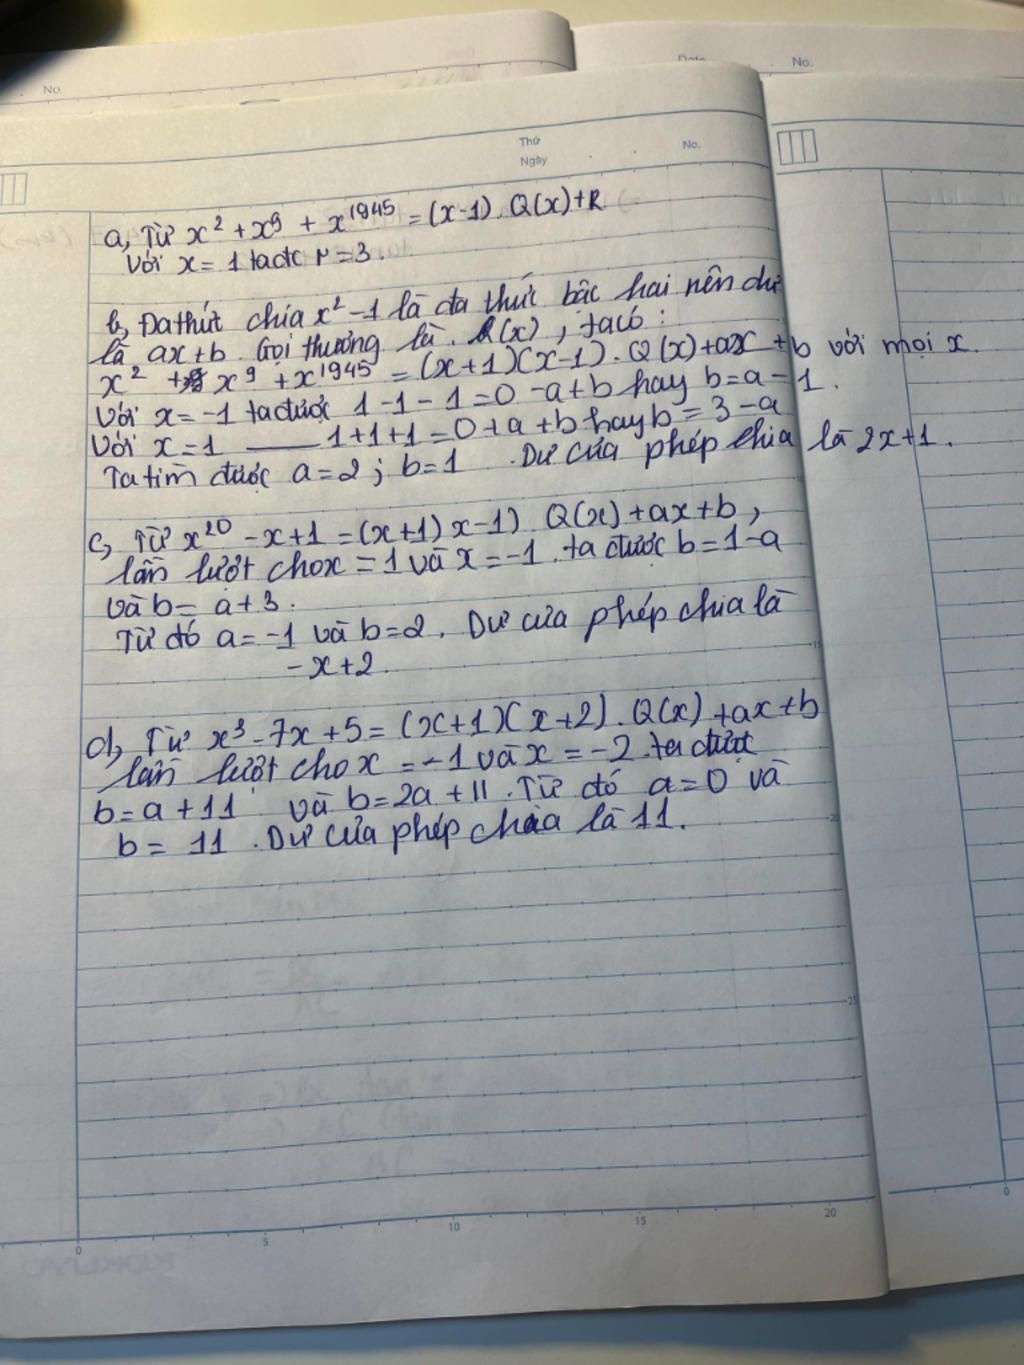 No.
Date No.
Thứ
Ngày
No.
a, Từ x² + x⁹ + x¹⁹⁴⁵ = (x-1). Q(x)+R
Với x = 1 ta đc r = 3.
b, Đa thức chia x² - 1 là đa thức bậc hai nên dư
là ax+b. Gọi thương là Q(x), ta có:
x² + x⁹ + x¹⁹⁴⁵ = (x+1)(x-1). Q(x)+ax+b với mọi x.
Với x = -1 ta được 1-1-1=0-a+b hay b=a-1.
Với x=1 —— 1+1+1=0+a+b hay b=3-a
Ta tìm được a=2; b=1. Dư của phép chia là 2x+1.
c, Từ x²⁰ - x+1 = (x+1)x-1) Q(x)+ax+b,
lần lượt cho x = 1 và x = -1. ta được b=1-a
và b = a+3.
Từ đó a = -1 và b=2. Dư của phép chia là
-x+2.
d, Từ x³ - 7x + 5 = (x+1)(x+2). Q(x) + ax+b
lần lượt cho x = -1 và x = -2. ta được
b=a+11 và b=2a+11. Từ đó a=0 và
b = 11. Dư của phép chia là 11.
15
20
25
0 5 10 15 20
0